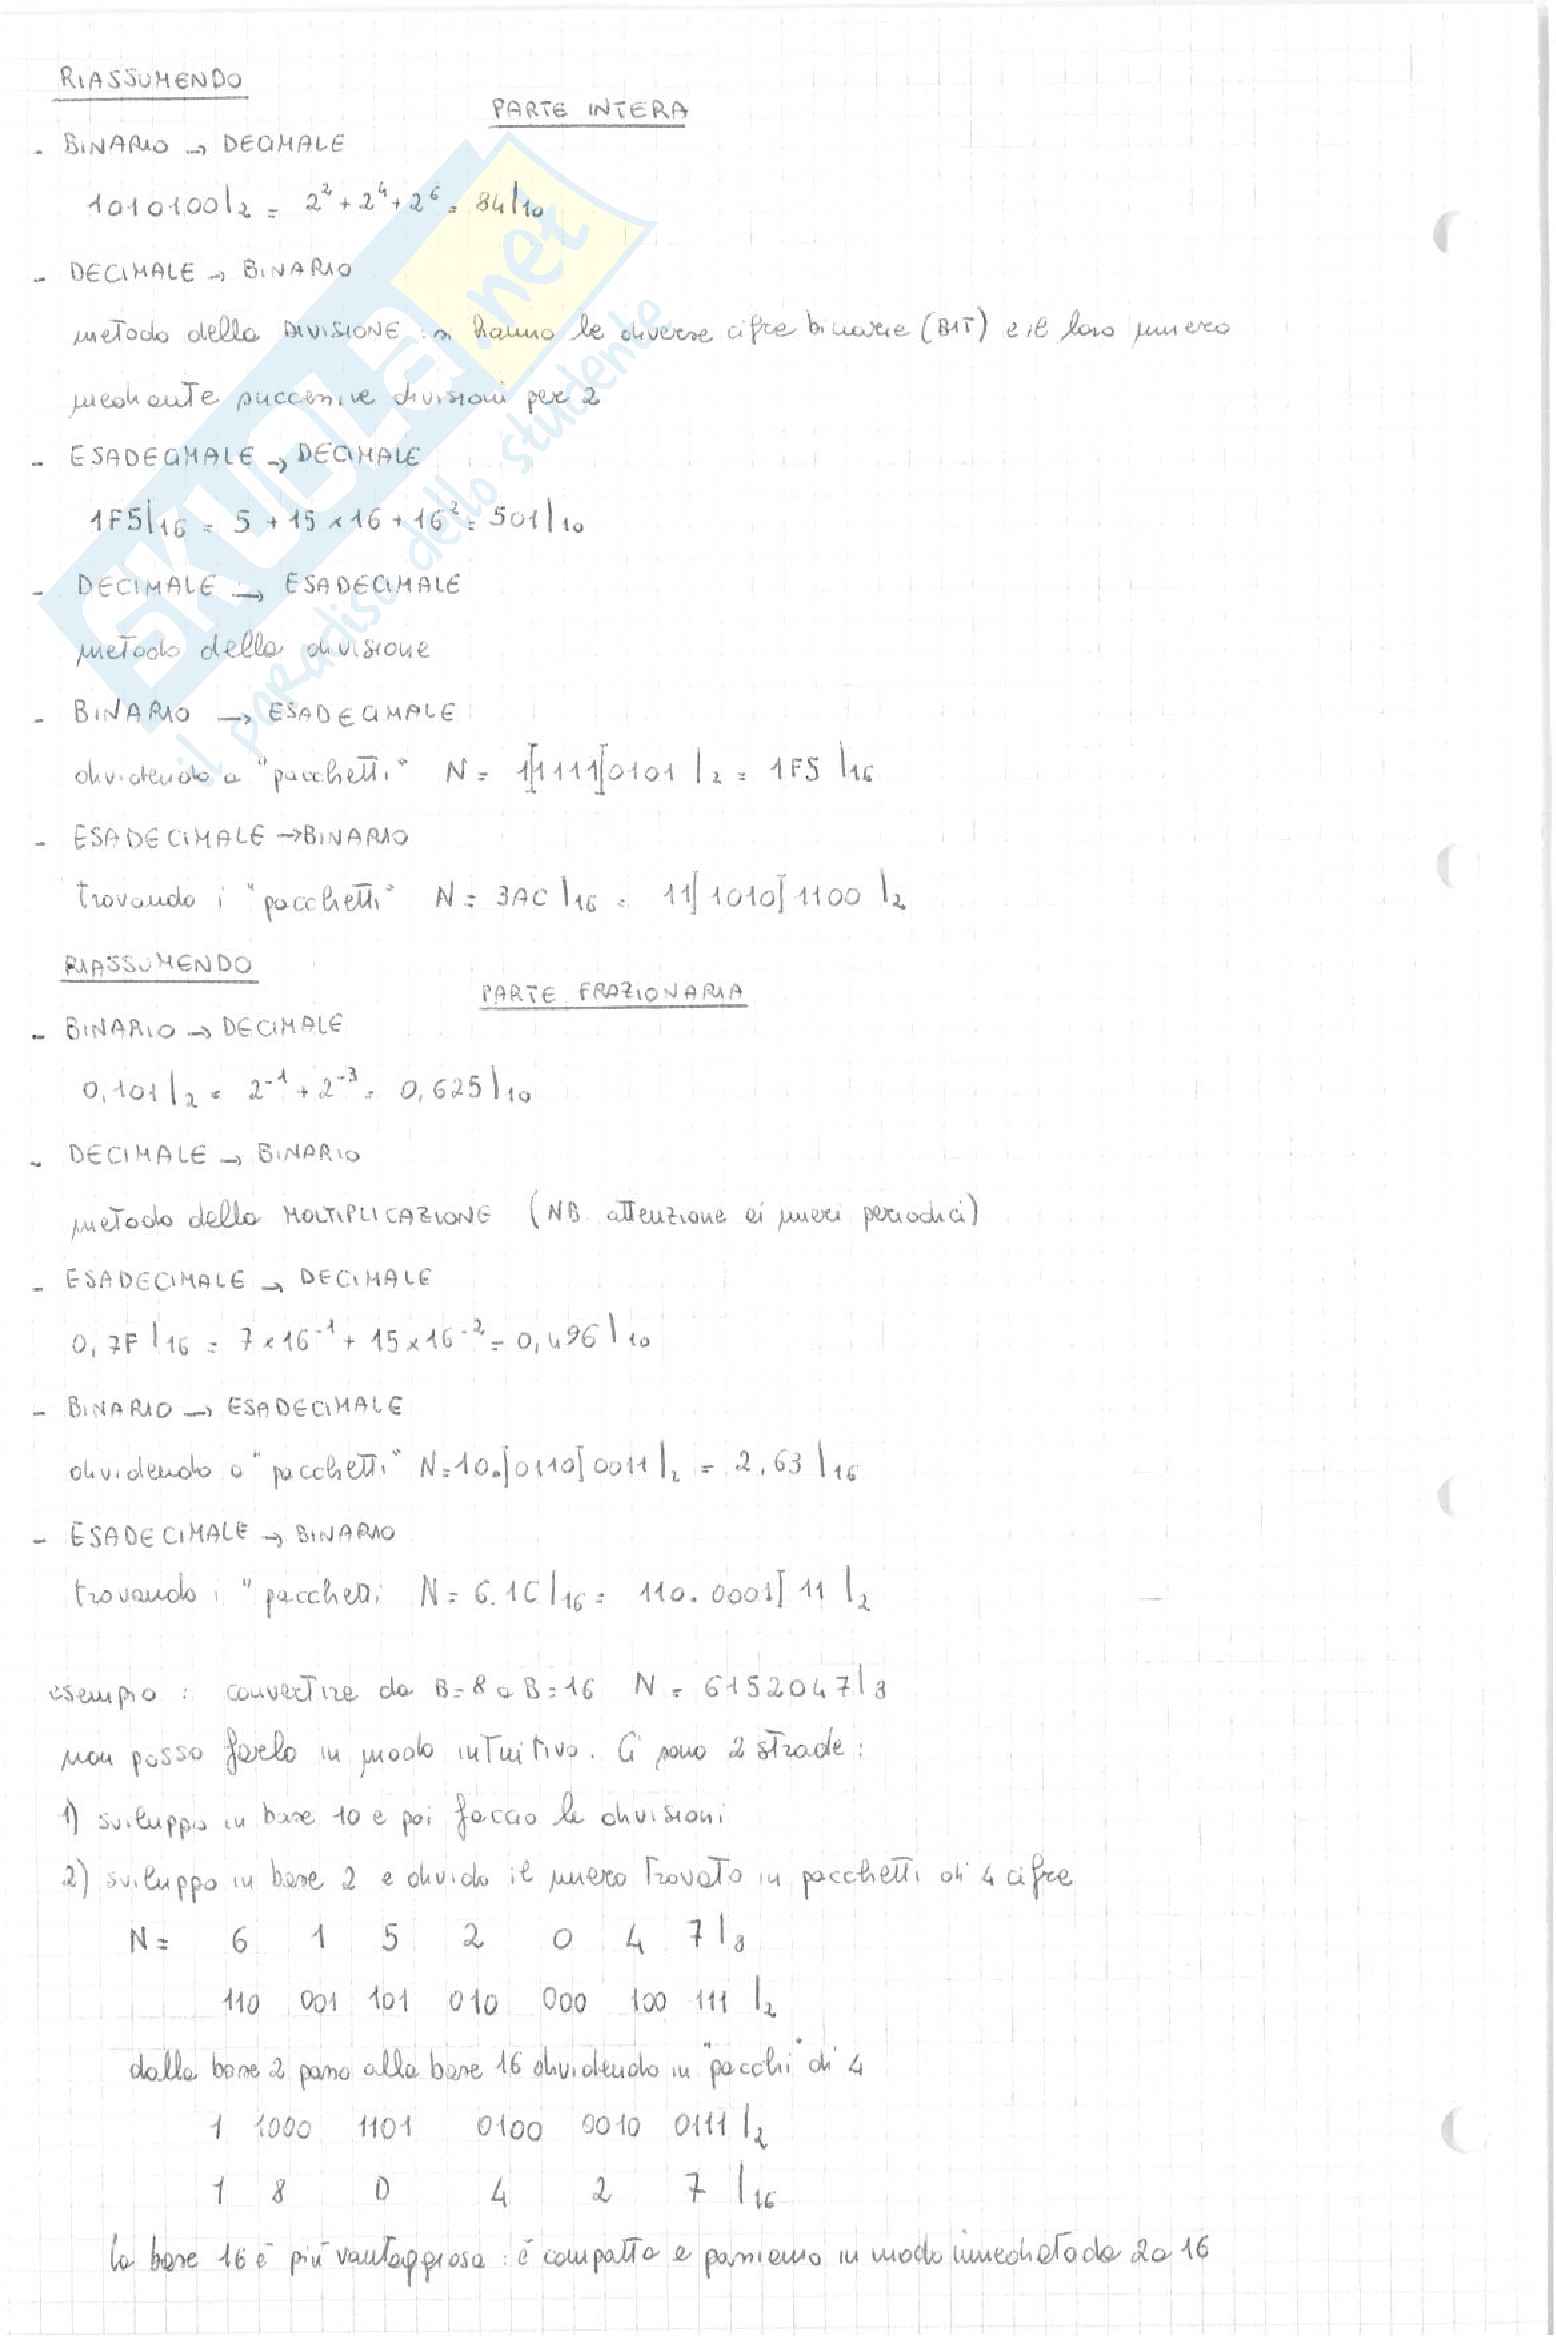 RIASSUMENDO
PARTE INTERA
- BINARIO → DECIMALE
1010100|2 = 2² + 2⁴ + 2⁶ = 84|10
- DECIMALE → BINARIO
metodo della DIVISIONE : si hanno le diverse cifre binarie (BIT) e il loro numero
mediante successive divisioni per 2
- ESADECIMALE → DECIMALE
1F5|16 = 5 + 15 × 16 + 16² = 501|10
- DECIMALE → ESADECIMALE
metodo della divisione
- BINARIO → ESADECIMALE
dividendo a "pacchetti" N = 1[1111]0101 |2 = 1F5 |16
- ESADECIMALE → BINARIO
trovando i "pacchetti" N = 3AC |16 = 11]1010]1100 |2
RIASSUMENDO
PARTE FRAZIONARIA
- BINARIO → DECIMALE
0,101|2 = 2⁻¹ + 2⁻³ = 0,625|10
- DECIMALE → BINARIO
metodo della MOLTIPLICAZIONE (NB. attenzione ai numeri periodici)
- ESADECIMALE → DECIMALE
0,7F |16 = 7 × 16⁻¹ + 15 × 16⁻² = 0,496|10
- BINARIO → ESADECIMALE
dividendo a "pacchetti" N=10.]0110]0011|2 = 2.63|16
- ESADECIMALE → BINARIO
trovando i "pacchetti N = 6.1C|16 = 110.0001]11 |2
esempio : convertire da B=8 a B=16 N = 6152047|8
non posso farlo in modo intuitivo. Ci sono 2 strade :
1) sviluppo in base 10 e poi faccio le divisioni
2) sviluppo in base 2 e divido il numero trovato in pacchetti di 4 cifre
N = 6 1 5 2 0 4 7|8
110 001 101 010 000 100 111 |2
dalla base 2 passo alla base 16 dividendo in "pacchi" di 4
1 1000 1101 0100 0010 0111 |2
1 8 D 4 2 7 |16
la base 16 è più vantaggiosa : è compatta e passiamo in modo immediato da 2 a 16
SKUOLA.net
il paradiso dello studente